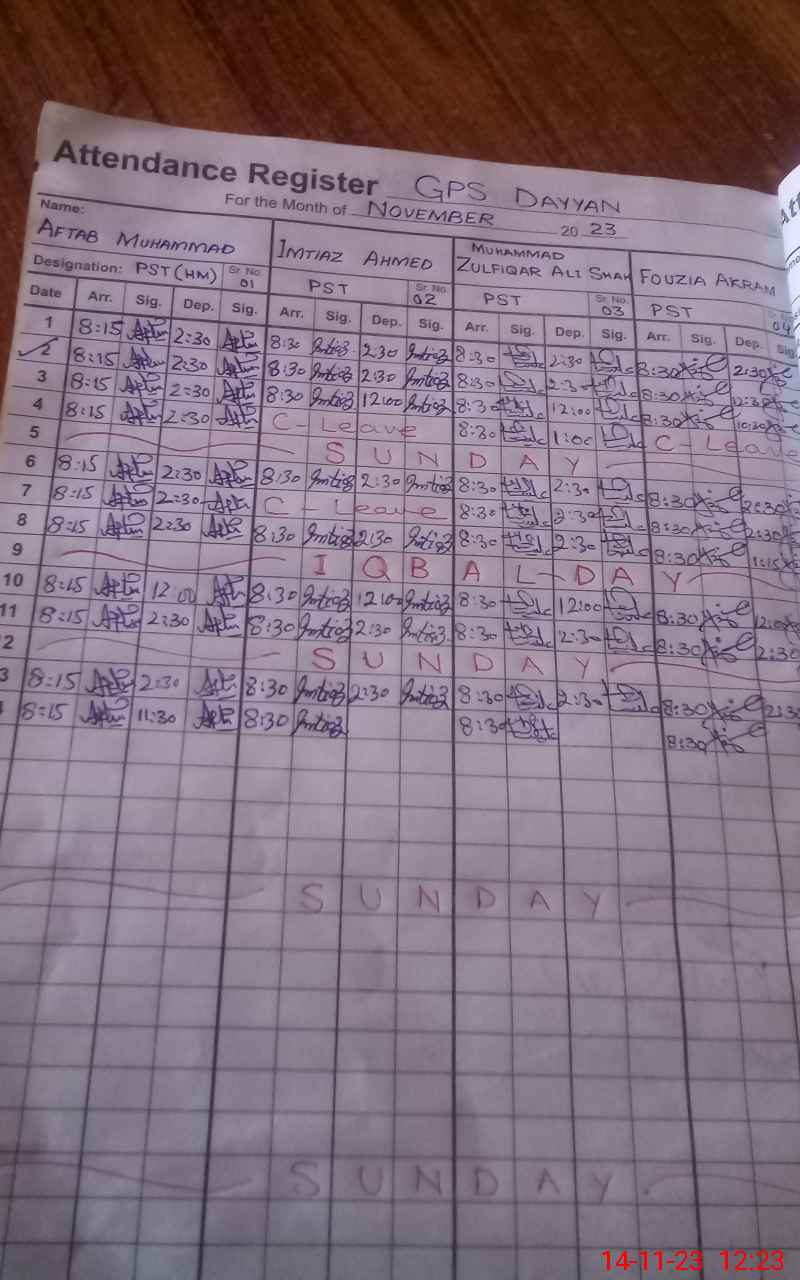 Attendance Register GPS DAYYAN
For the Month of NOVEMBER 20 23
Name:
AFTAB MUHAMMAD IMTIAZ AHMED MUHAMMAD ZULFIQAR ALI SHAH FOUZIA AKRAM
Designation: PST (HM) Sr. No. 01 PST Sr. No. 02 PST Sr. No. 03 PST Sr. No. 04
Date Arr. Sig. Dep. Sig. Arr. Sig. Dep. Sig. Arr. Sig. Dep. Sig. Arr. Sig. Dep. Sig.
1 8:15 2:30 8:30 Imtiaz 2:30 Imtiaz 8:30 2:30 8:30 2:30
2 8:15 2:30 8:30 Imtiaz 2:30 Imtiaz 8:30 2:30 8:30 12:30
3 8:15 2:30 8:30 Imtiaz 12:00 Imtiaz 8:30 12:00 8:30 10:30
4 8:15 2:30 C-Leave 8:30 1:00 C-Leave
5 SUNDAY
6 8:15 2:30 8:30 Imtiaz 2:30 Imtiaz 8:30 2:30 8:30 2:30
7 8:15 2:30 C-Leave 8:30 2:30 8:30 2:30
8 8:15 2:30 8:30 Imtiaz 2:30 Imtiaz 8:30 2:30 8:30 1:15
9 IQBAL DAY
10 8:15 12:00 8:30 Imtiaz 12:00 Imtiaz 8:30 12:00 8:30 12:0
11 8:15 2:30 8:30 Imtiaz 2:30 Imtiaz 8:30 2:30 8:30 2:30
2 SUNDAY
3 8:15 2:30 8:30 Imtiaz 2:30 Imtiaz 8:30 2:30 8:30 2:3
8:15 11:30 8:30 Imtiaz 8:30 8:30
SUNDAY
SUNDAY
14-11-23 12:23